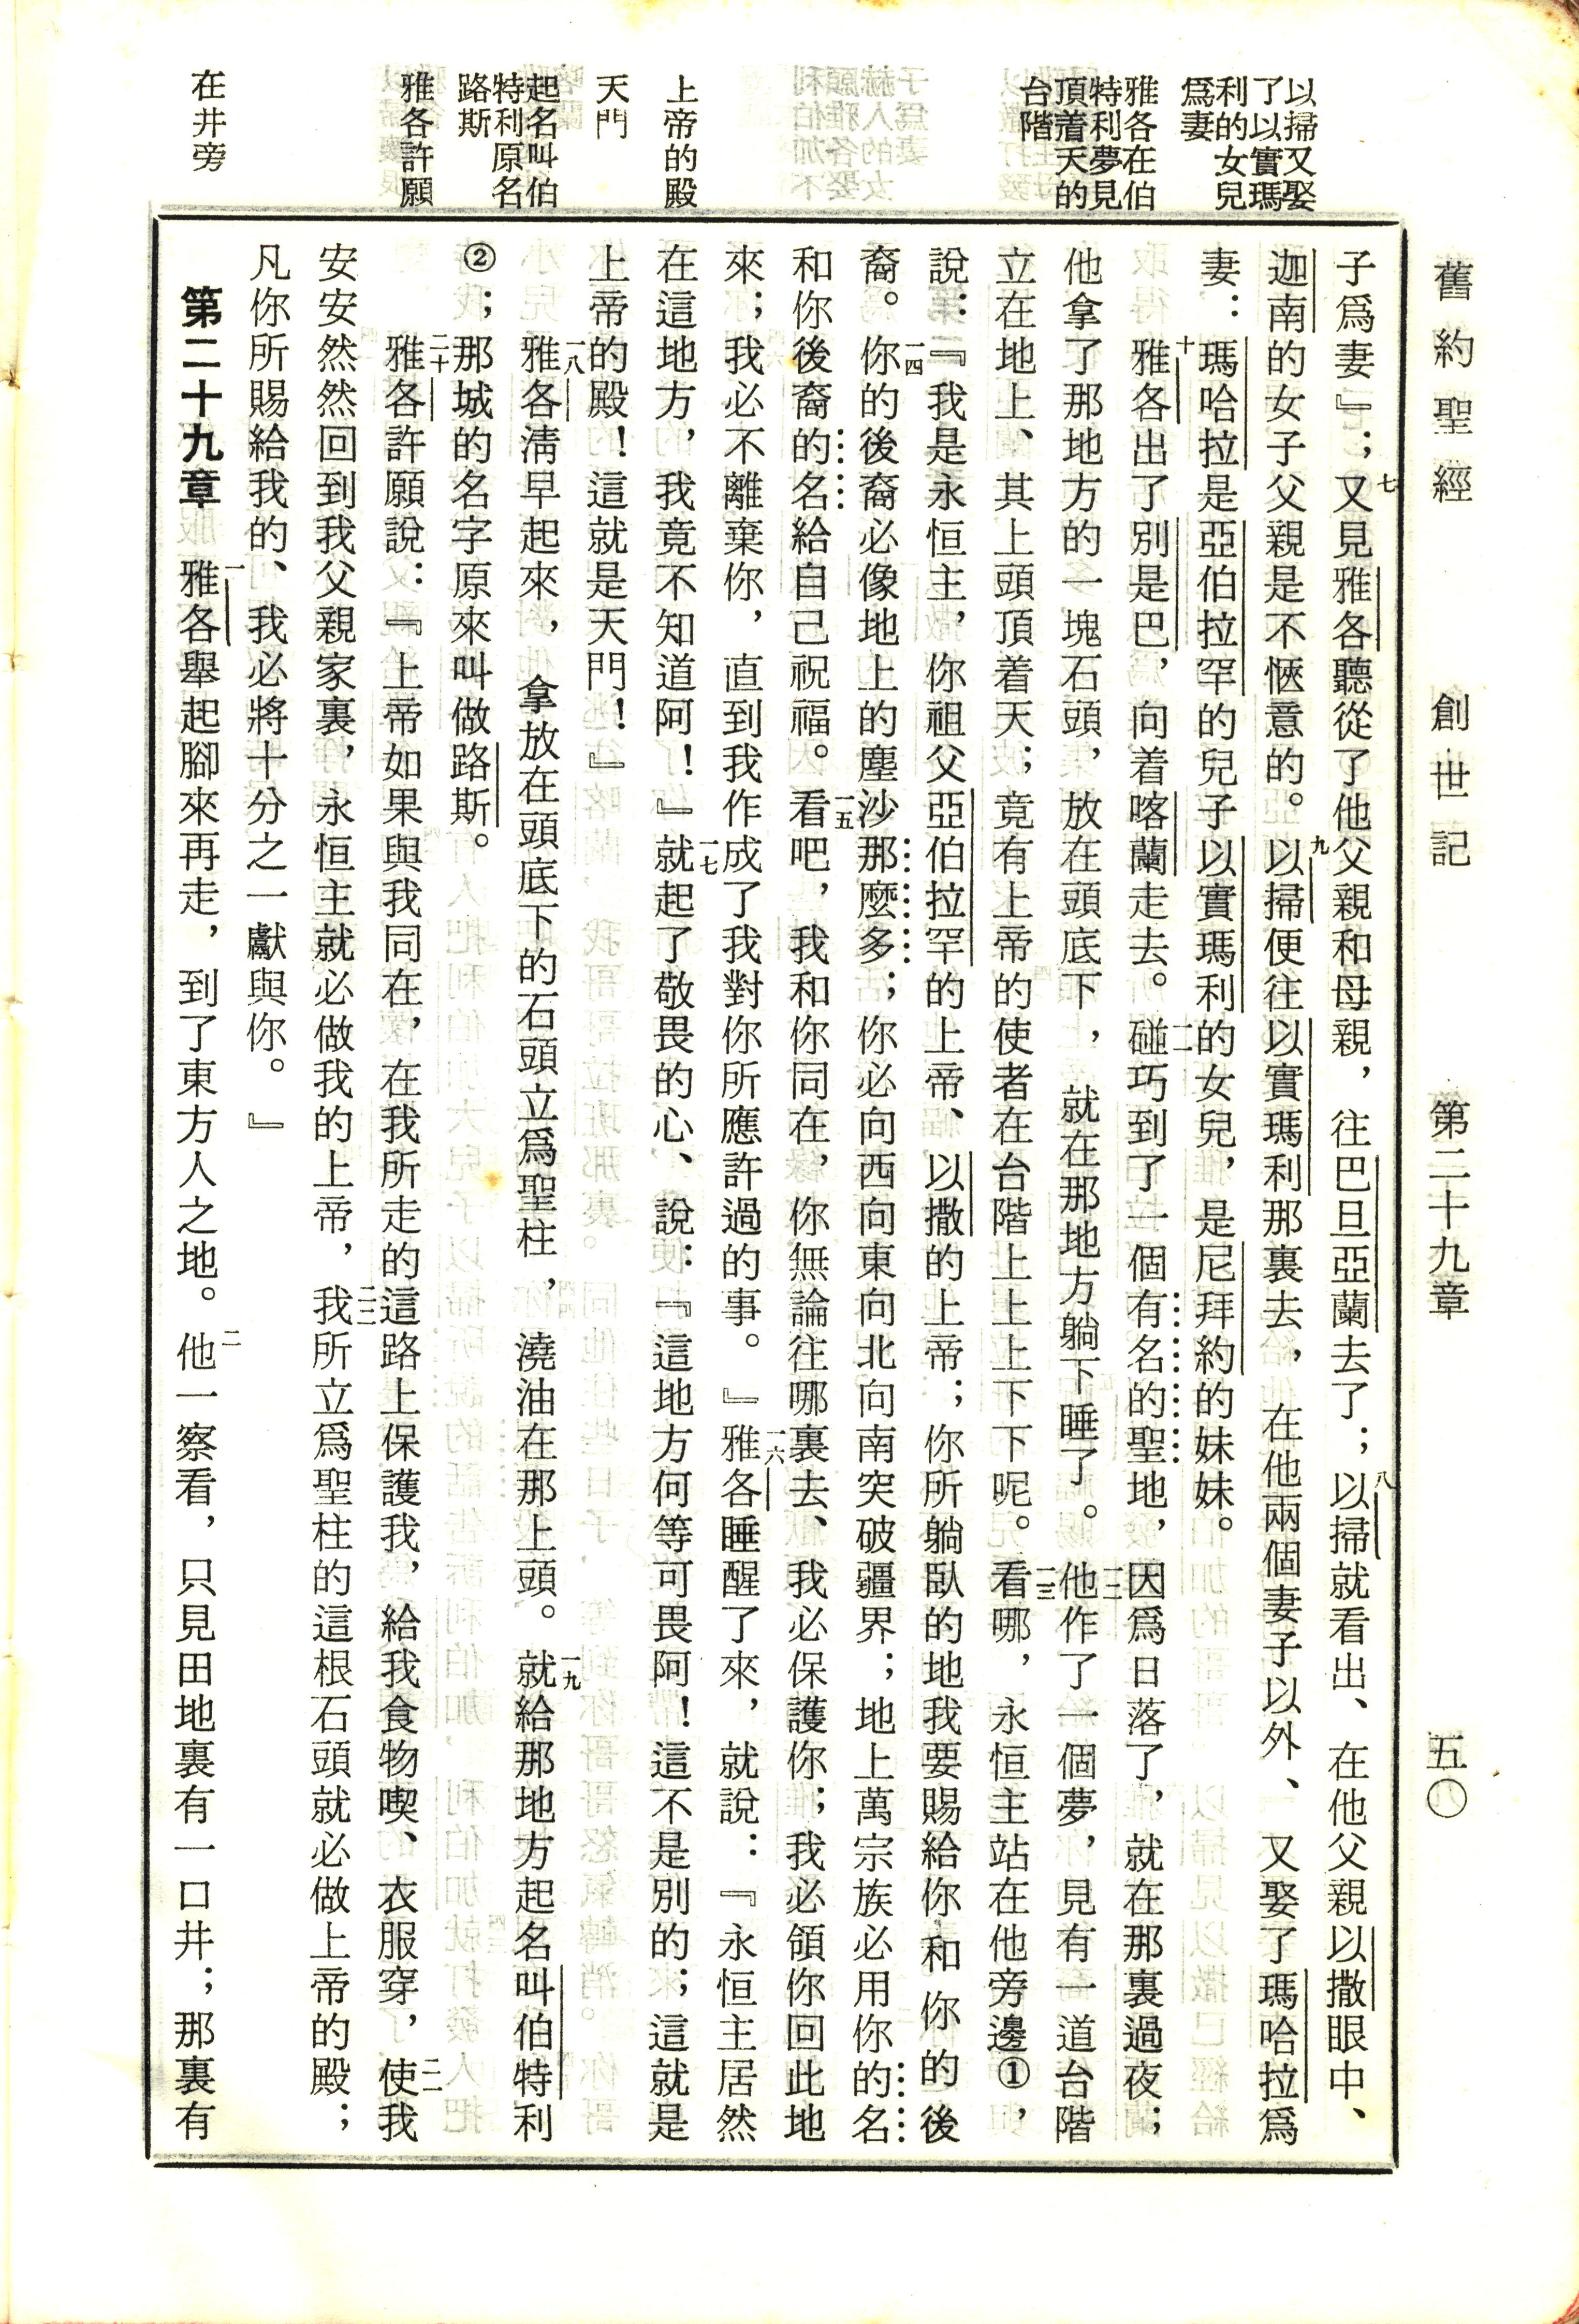 舊約聖經　創世記　第二十九章　五〇
以掃又娶
了以實瑪
利的女兒
爲妻
雅各在伯
特利夢見
頂着天的
台階
上帝的殿
天門
起名叫伯
特利原名
路斯
雅各許願
在井旁
子爲妻』；七又見雅各聽從了他父親和母親，往巴旦亞蘭去了；八以掃就看出、在他父親以撒眼中、
迦南的女子父親是不愜意的。九以掃便往以實瑪利那裏去，在他兩個妻子以外、又娶了瑪哈拉爲
妻：瑪哈拉是亞伯拉罕的兒子以實瑪利的女兒，是尼拜約的妹妹。
十雅各出了別是巴，向着喀蘭走去。一一碰巧到了一個有名的聖地，因爲日落了，就在那裏過夜；
他拿了那地方的一塊石頭，放在頭底下，就在那地方躺下睡了。一二他作了一個夢，見有一道台階
立在地上、其上頭頂着天；竟有上帝的使者在台階上上上下下呢。一三看哪，永恒主站在他旁邊①，
說：『我是永恒主，你祖父亞伯拉罕的上帝、以撒的上帝；你所躺臥的地我要賜給你和你的後
裔。一四你的後裔必像地上的塵沙那麼多；你必向西向東向北向南突破疆界；地上萬宗族必用你的名
和你後裔的名給自己祝福。一五看吧，我和你同在，你無論往哪裏去、我必保護你；我必領你回此地
來；我必不離棄你，直到我作成了我對你所應許過的事。』一六雅各睡醒了來，就說：『永恒主居然
在這地方，我竟不知道阿！』一七就起了敬畏的心、說：『這地方何等可畏阿！這不是別的；這就是
上帝的殿！這就是天門！』
一八雅各淸早起來，拿放在頭底下的石頭立爲聖柱，澆油在那上頭。一九就給那地方起名叫伯特利
②；那城的名字原來叫做路斯。
二十雅各許願說：『上帝如果與我同在，在我所走的這路上保護我，給我食物喫、衣服穿，二一使我
安安然然回到我父親家裏，永恒主就必做我的上帝，二二我所立爲聖柱的這根石頭就必做上帝的殿；
凡你所賜給我的、我必將十分之一獻與你。』
第二十九章　一雅各舉起腳來再走，到了東方人之地。二他一察看，只見田地裏有一口井；那裏有